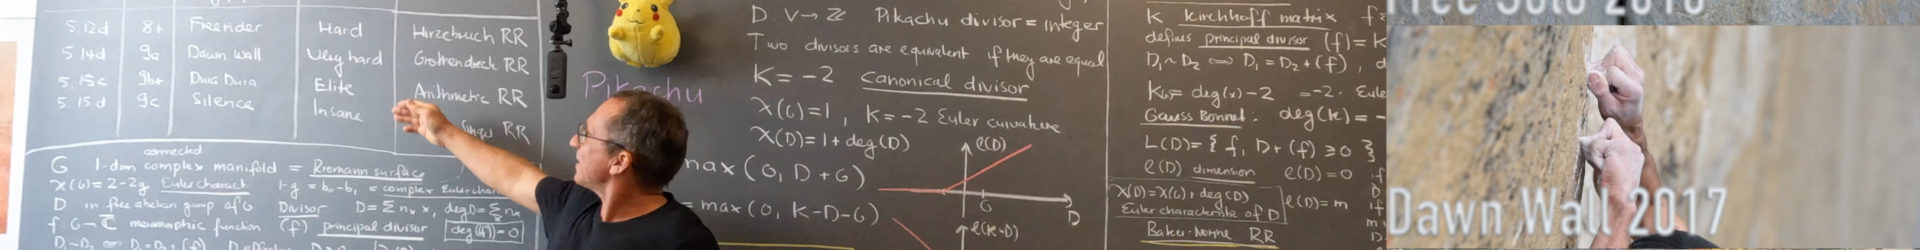 5.12d 8+ Freerider Hard Hirzebruch RR
5.14d 9a Dawn Wall Very hard Grothendieck RR
5.15c 9b+ Dura Dura Elite Arithmetic RR
5.15d 9c Silence Insane Singer RR
connected
G 1-dim complex manifold = Riemann surface
χ(G)=2-2g Euler charact 1-g = b₀-b₁ = complex Euler char
D in free abelian group of G Divisor D=Σ nₓ x, deg D=Σ nₓ
f: G→C̄ meromorphic function (f) principal divisor deg(f)=0
D₁~D₂ D₁=D₂+(f)
Pikachu
D: V→ℤ Pikachu divisor = integer
Two divisors are equivalent if they are equal
K=-2 canonical divisor
χ(G)=1, K=-2 Euler curvature
χ(D)=1+deg(D)
max(0, D+G)
= max(0, K-D-G)
ℓ(D)
G
D
ℓ(K-D)
K Kirchhoff matrix
defines principal divisor (f)=K
D₁~D₂ ⟺ D₁=D₂+(f),
K(x)= deg(x)-2 =-2. Eule
Gauss Bonnet: deg(K)=-
L(D)={f, D+(f)≥0}
ℓ(D) dimension ℓ(D)=0
χ(D)=χ(G)+deg(D)
Euler characteristic of D
ℓ(D)=m
Baker-Norine RR
Free Solo 2018
Dawn Wall 2017